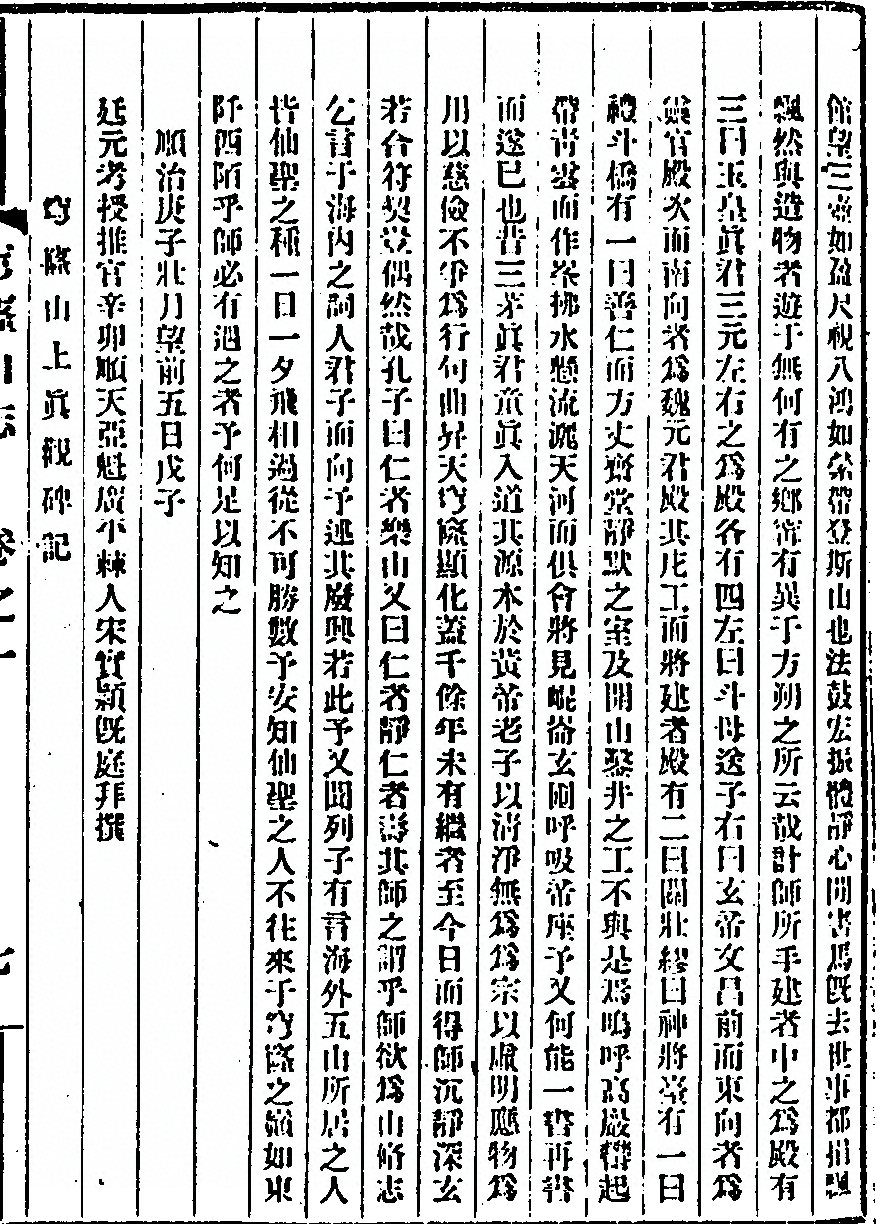 館望三壺如盈尺視八鴻如縈帶登斯山也法鼓宏振體靜心閒害馬旣去世事都捐飄
飄然與造物者遊于無何有之鄉寧有異于方朔之所云哉計師所手建者中之爲殿有
三曰玉皇眞君三元左右之爲殿各有四左曰斗母送子右曰玄帝文昌前而東向者爲
靈官殿次而南向者爲魏元君殿其庀工而將建者殿有二曰關壯繆曰神將臺有一曰
禮斗橋有一曰善仁而方丈齋堂靜默之室及開山鑿井之工不與是焉嗚呼高嚴欝起
帶靑雲而作峯拂水懸流灑天河而俱會將見崐崙玄圃呼吸帝座予又何能一書再書
而遂已也昔三茅眞君童眞入道其源本於黃帝老子以淸淨無爲爲宗以虛明應物爲
用以慈儉不爭爲行句曲昇天穹窿顯化蓋千餘年未有繼者至今日而得師沉靜深玄
若合符契豈偶然哉孔子曰仁者樂山又曰仁者靜仁者壽其師之謂乎師欲爲山脩志
乞言于海內之詞人君子而向予述其廢興若此予又聞列子有言海外五山所居之人
皆仙聖之種一日一夕飛相過從不可勝數予安知仙聖之人不往來于穹窿之巓如東
阡西陌乎師必有遇之者予何足以知之
順治庚子壯月望前五日戊子
廷元考授推官辛卯順天亞魁廣平棘人宋實穎旣庭拜撰
穹窿山上眞觀碑記
穹窿山志 卷之一 七